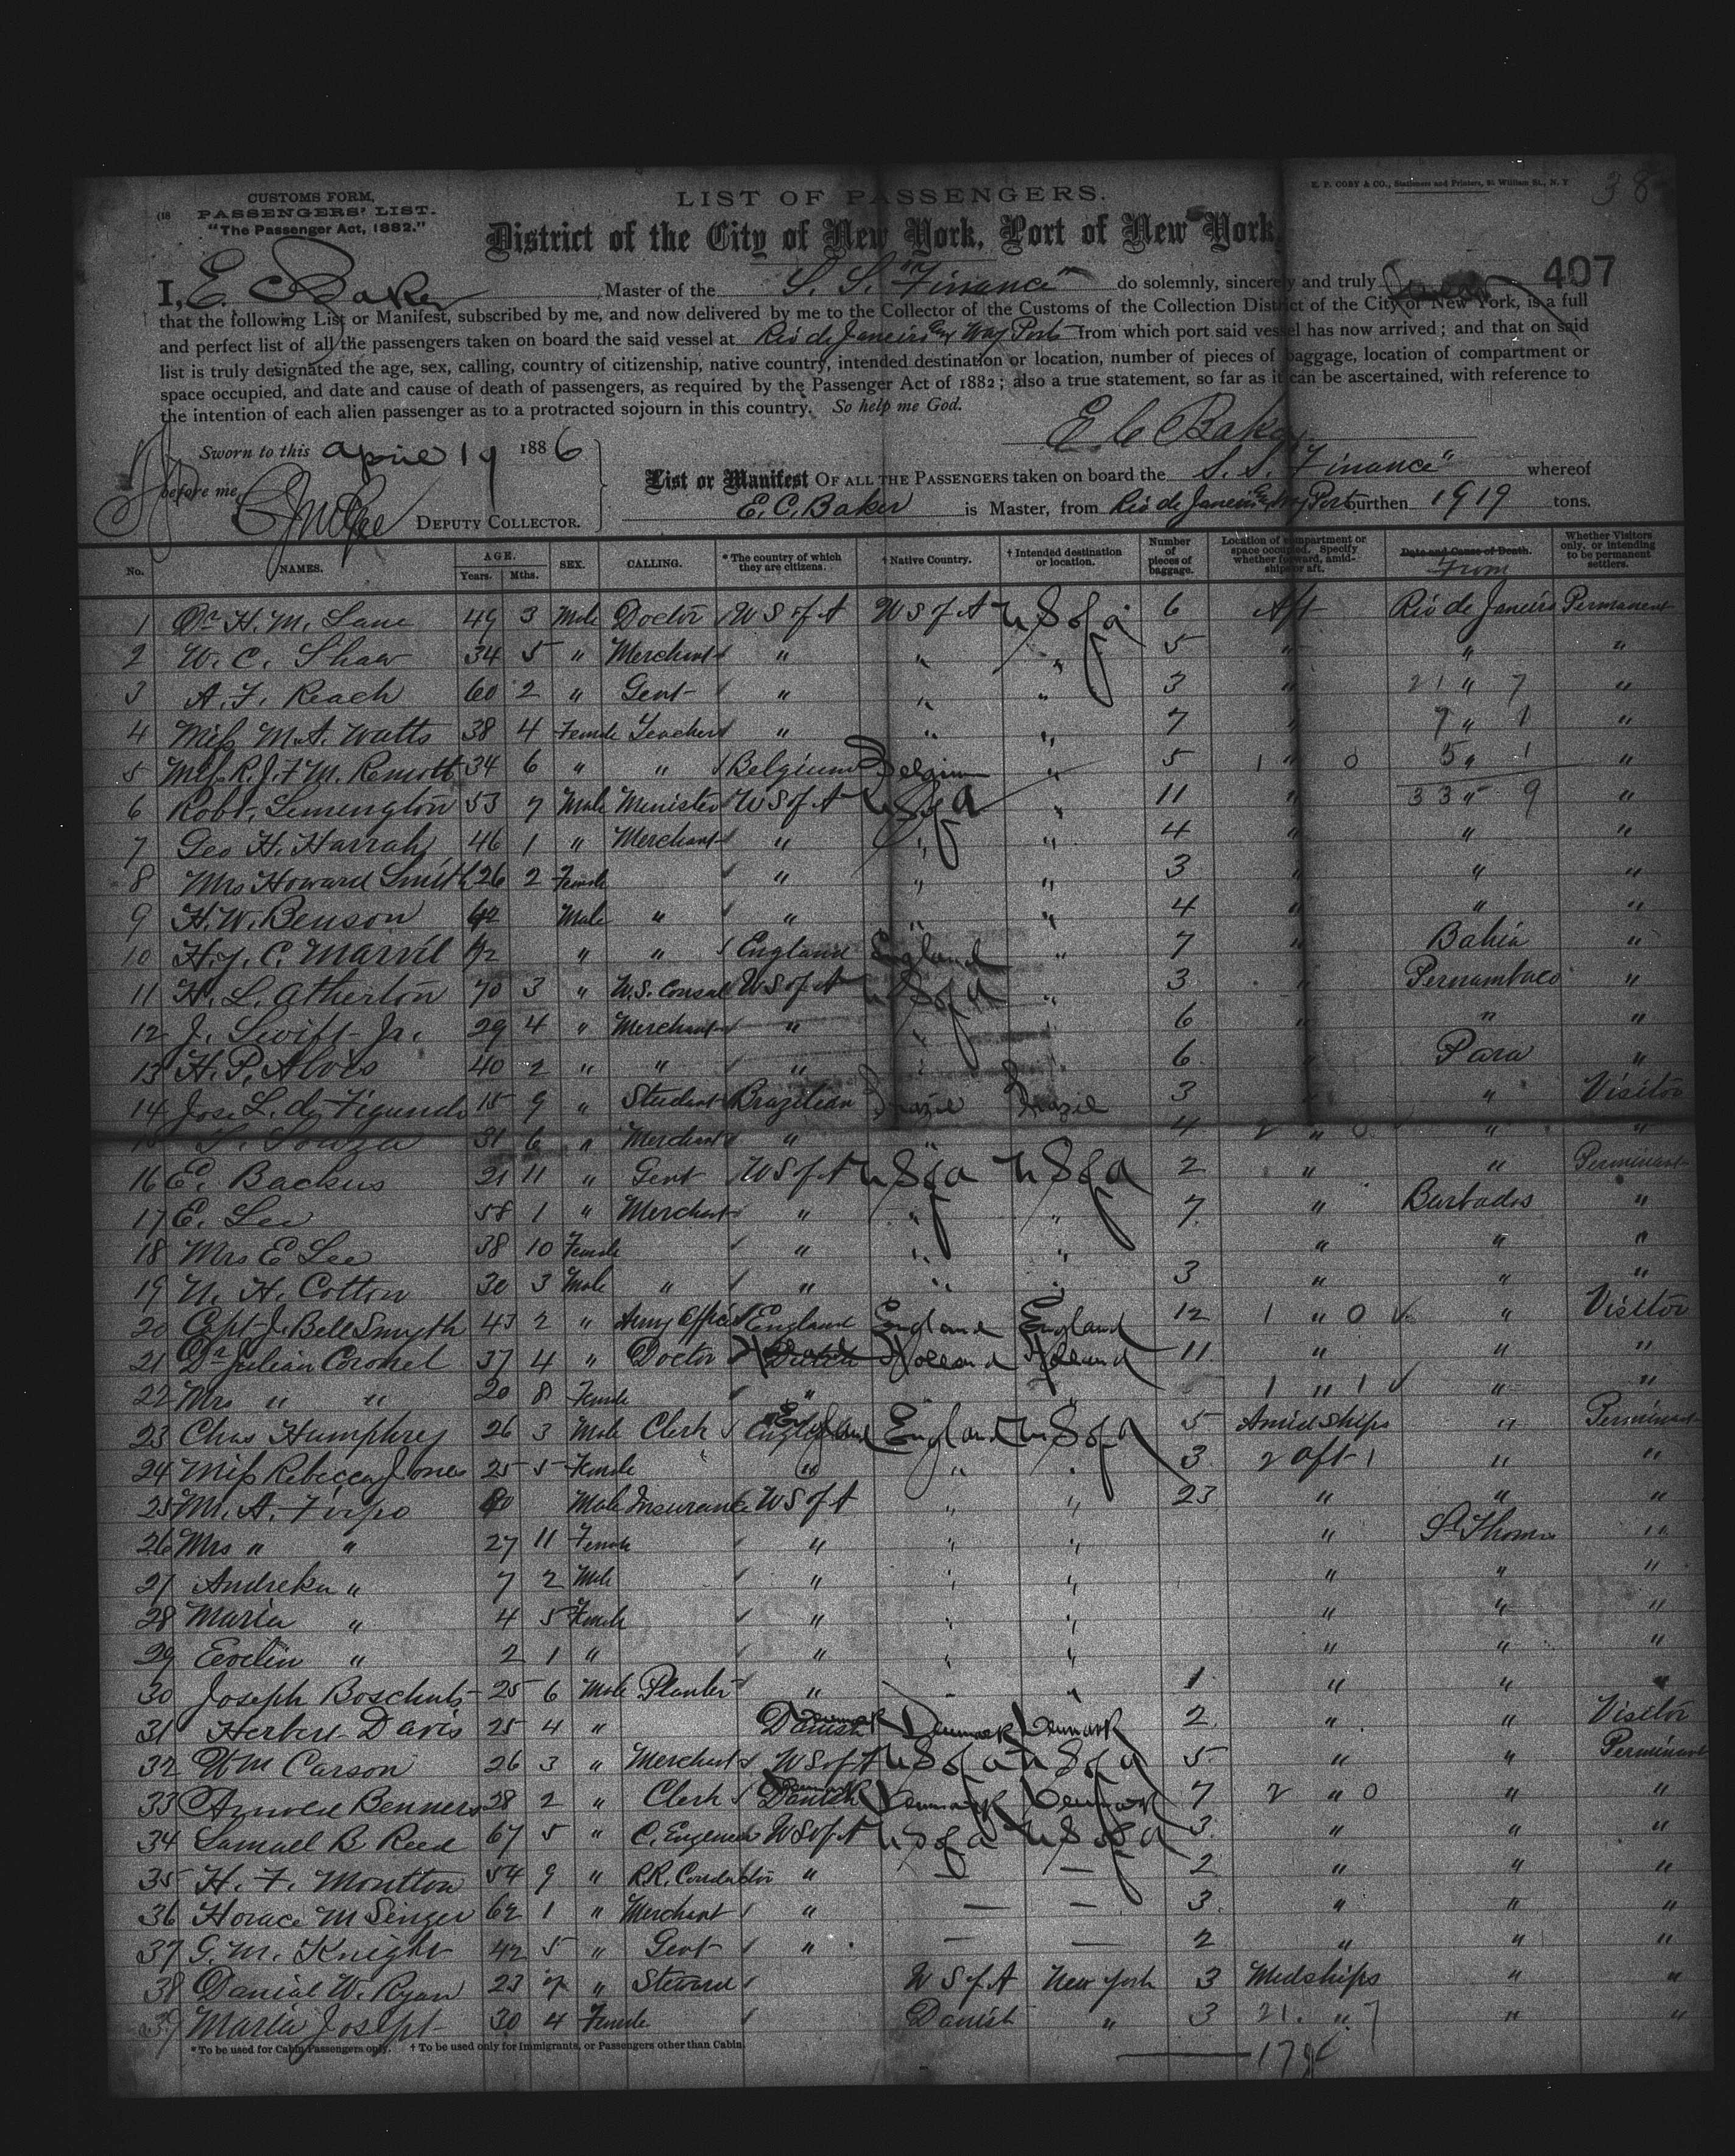 CUSTOMS FORM,
PASSENGERS' LIST.
"The Passenger Act, 1882."
LIST OF PASSENGERS.
E. P. COBY & CO., Stationers and Printers, 91 William St., N. Y
38
District of the City of New York, Port of New York.
407
I, E. C. Baker Master of the S. S. "Finance" do solemnly, sincerely and truly
that the following List or Manifest, subscribed by me, and now delivered by me to the Collector of the Customs of the Collection District of the City of New York, is a full
and perfect list of all the passengers taken on board the said vessel at Rio de Janeiro & Way Ports from which port said vessel has now arrived; and that on said
list is truly designated the age, sex, calling, country of citizenship, native country, intended destination or location, number of pieces of baggage, location of compartment or
space occupied, and date and cause of death of passengers, as required by the Passenger Act of 1882; also a true statement, so far as it can be ascertained, with reference to
the intention of each alien passenger as to a protracted sojourn in this country. So help me God.
E C Baker
Sworn to this April 19 1886
before me
DEPUTY COLLECTOR.
List or Manifest OF ALL THE PASSENGERS taken on board the S. S. "Finance" whereof
E. C. Baker is Master, from Rio de Janeiro & Way Ports burthen 1919 tons.
No. NAMES. AGE. Years. Mths. SEX. CALLING. * The country of which they are citizens. † Native Country. † Intended destination or location. Number of pieces of baggage. Location of compartment or space occupied. Specify whether forward, amidships or aft. Date and Cause of Death. From Whether Visitors only, or intending to be permanent settlers.
1 Dr. H. M. Lane 49 3 Male Doctor U S of A U S of A U S of A 6 Aft Rio de Janeiro Permanent
2 W. C. Shaw 34 5 " Merchant " " " 5 " " "
3 A. F. Reach 60 2 " Gent " " " 3 " 21 " 7 "
4 Miss M. A. Watts 38 4 Female Teacher " " " 7 " 7 " 1 "
5 Miss R. J. F. M. 34 6 " " Belgium Belgium " 5 1 " 0 5 " 1 "
6 Robt. Lenington 53 7 Male Minister U S of A U S of A " 11 " 33 " 9 "
7 Geo H. Harrah 46 1 " Merchant " " " 4 " " "
8 Mrs Howard Smith 26 2 Female " " " 3 " " "
9 H. W. Benson 42 Male " " " " 4 " " "
10 H. J. C. Marvil 42 " " England England " 7 " Bahia "
11 H. L. Atherton 70 3 " U.S. Consul U S of A U S of A " 3 " Pernambuco "
12 J. Swift Jr. 29 4 " Merchant " " " 6 " " "
13 H. P. Alves 40 2 " " " " " 6 " Para "
14 Jose L. de 15 9 " Student Brazilian Brazil Brazil 3 " " Visitor
15 Souza 31 6 " Merchant " " 4 2 " 0 " "
16 E. Backus 21 11 " Gent U S of A U S of A U S of A 2 " " Perminant
17 E. Lee 58 1 " Merchant " " " 7 " Barbados "
18 Mrs E Lee 38 10 Female " " " " " "
19 N. H. Cotton 30 3 Male " " " " 3 " " "
20 Capt J. Bell Smyth 43 2 " Army Officer England England England 12 1 " 0 " Visitor
21 Dr Julian Coronel 37 4 " Doctor Dutch Holland Holland 11 " " "
22 Mrs " " 20 8 Female " " " 1 " 1 " "
23 Chas Humphrey 26 3 Male Clerk England England U S of A 5 Amidships " Perminant
24 Miss Rebecca Jones 25 5 Female " " " 3 2 aft 1 " "
25 M. A. Firpo 40 Male Insurance U S of A " " 23 " " "
26 Mrs " " 27 11 Female " " " " St Thomas "
27 " 7 2 Male " " " " " "
28 Maria " 4 5 Female " " " " " "
29 Evelin " 2 1 " " " " " " "
30 Joseph Boschults 25 6 Male Planter " " " 1 " " "
31 Herbert Davis 25 4 " Danish Denmark Denmark Denmark 2 " " Visitor
32 Wm Carson 26 3 " Merchant U S of A U S of A U S of A 5 " " Perminant
33 Benners 28 2 " Clerk Danish Denmark Denmark Denmark 7 2 " 0 " "
34 Samuel B Reed 67 5 " C. Engineer U S of A U S of A U S of A 3 " " "
35 H. F. Montton 54 9 " R.R. Conductor " — — 2 " " "
36 Horace M Singer 62 1 " Merchant " — — 3 " " "
37 G. M. Knight 42 5 " Gent " — — 2 " " "
38 Danial W. Ryan 23 " Steward U S of A New York 3 Midships " "
39 Maria Joseph 30 4 Female Danish " 3 21 " 7 " "
* To be used for Cabin Passengers only. † To be used only for Immigrants, or Passengers other than Cabin.